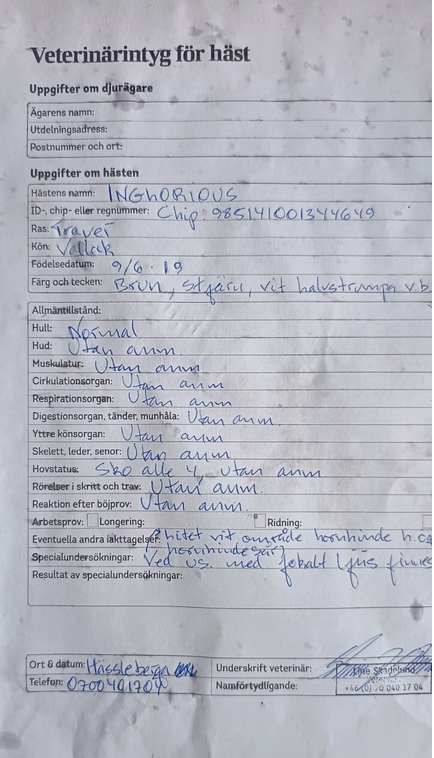 Veterinärintyg för häst
Uppgifter om djurägare
Ägarens namn:
Utdelningsadress:
Postnummer och ort:
Uppgifter om hästen
Hästens namn: INGhORIOUS
ID-, chip- eller regnummer: Chip: 985141001344649
Ras: Traver
Kön: Vallack
Födelsedatum: 9/6 - 19
Färg och tecken: Brun, stjärn, vit halvstrumpa v.b.
Allmäntillstånd:
Hull: Normal
Hud: Utan anm
Muskulatur: Utan anm
Cirkulationsorgan: Utan anm
Respirationsorgan: Utan anm
Digestionsorgan, tänder, munhåla: Utan anm.
Yttre könsorgan: Utan anm
Skelett, leder, senor: Utan anm
Hovstatus: Sko alla 4, utan anm
Rörelser i skritt och trav: Utan anm.
Reaktion efter böjprov: Utan anm.
Arbetsprov: Longering: Ridning:
Eventuella andra iakttagelser: litet vit område hornhinde h
Specialundersökningar: Ved us. med fokalt ljus finnes
Resultat av specialundersökningar:
Ort & datum: Hässleberga Underskrift veterinär:
Telefon: Namnförtydligande: +46(0) 70 040 17 04